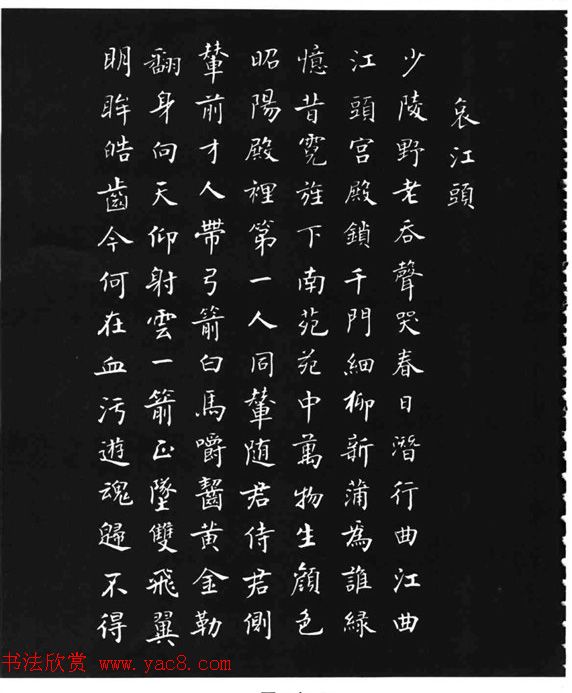 哀江頭
少陵野老吞聲哭春日潛行曲江曲
江頭宮殿鎖千門細柳新蒲為誰緑
憶昔霓旌下南苑苑中萬物生顔色
昭陽殿裡第一人同輦随君侍君側
輦前才人帶弓箭白馬嚼齧黃金勒
翻身向天仰射雲一箭正墜雙飛翼
明眸皓齒今何在血污遊魂歸不得
书法欣赏 www.yac8.com